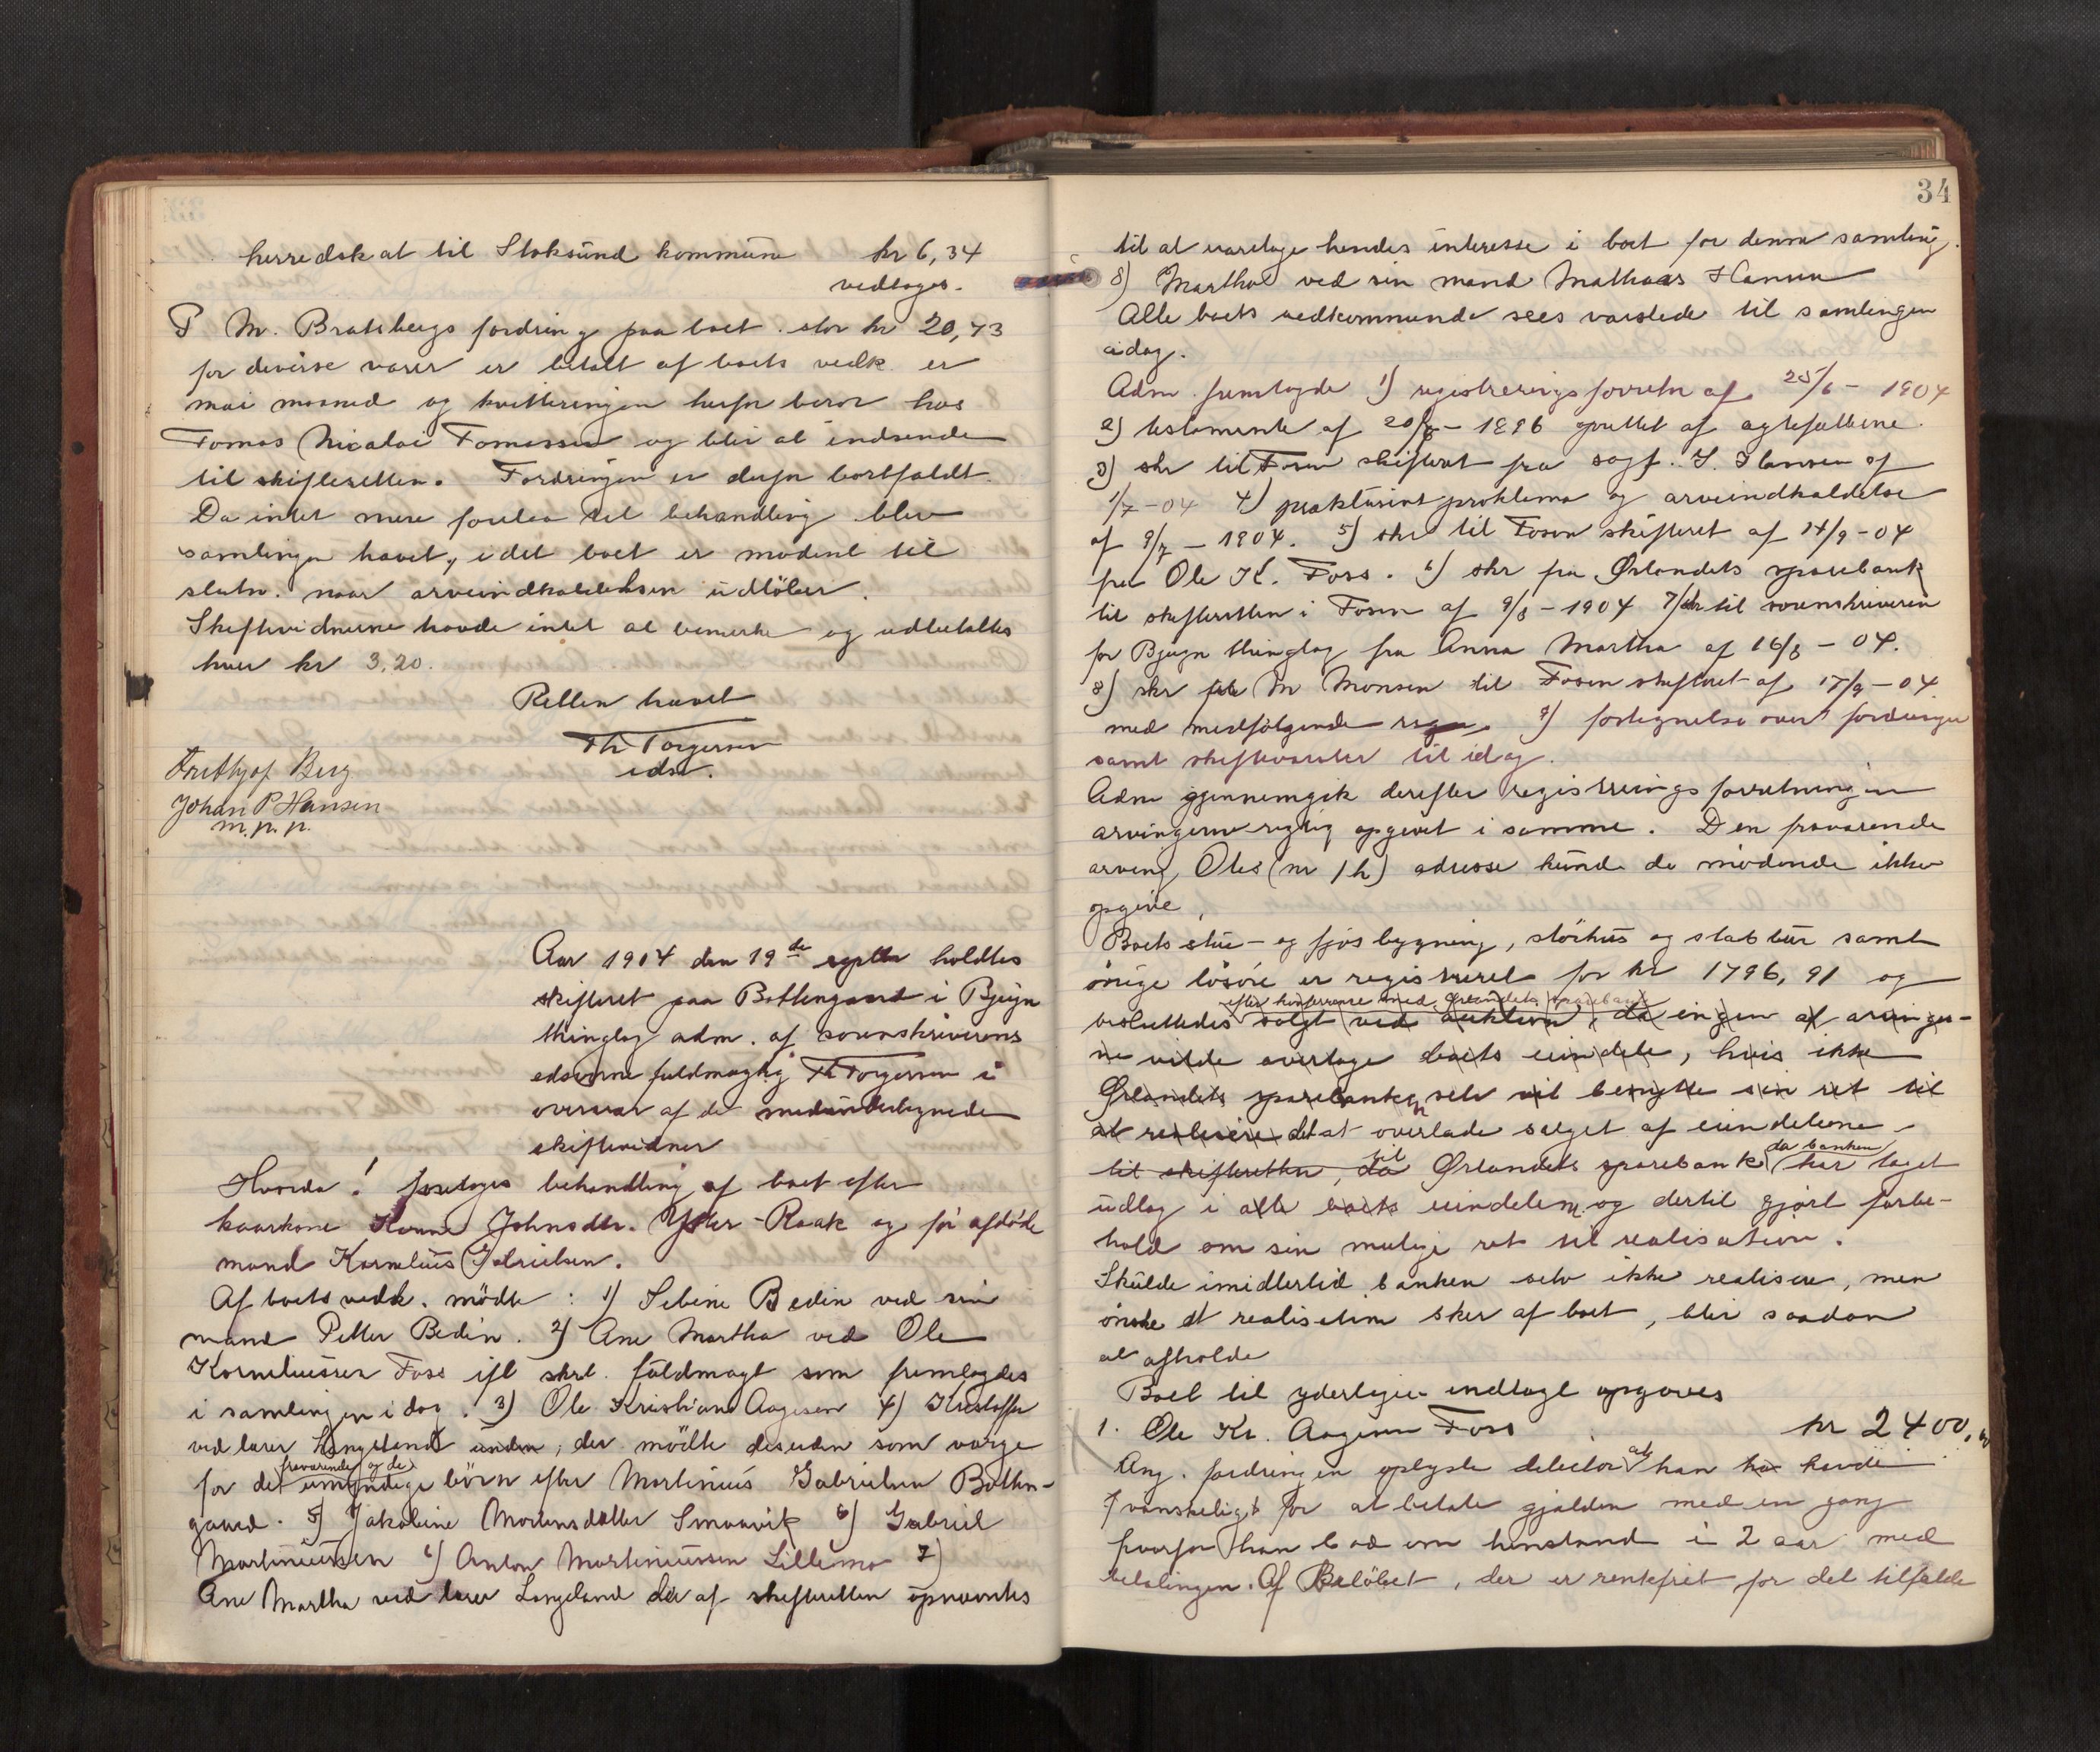 herredskat til Stoksund kommune kr 6,34
vedtoges.
P M. Bratsbergs fordring paa boet stor kr 20,73
for diverse varer er betalt af boets vedk er
mai maaned og kvitteringen herfor beror hos
Tomas Nicalai Tomassen og blir at indsende
til skifteretten. Fordringen er derfor bortfaldt.
Da intet mere forelaa til behandling blev
samlingen hævet, idet boet er modent til
slutn. naar arveindkaldelsen udløber.
Skiftevidnerne havde intet at bemerke og udbetaltes
hver kr 3,20.
Retten hævet
Th Torgersen
edsv.
Frithjof Berg
Johan P Hansen
m. p. p.
Aar 1904 den 19de septbr holdtes
skifteret paa Bottengaard i Bjugn
thinglag adm. af sorenskriverens
edsvorne fuldmægtig Th Torgersen i
overvær af de medundertegnede
skiftevidner
Hvorda! foretoges behandling af boet efter
kaarkone Johnsdtr. Yster-Raak og før afdøde
mand Kornelius Gabrielsen.
Af boets vedk. mødte: 1) Sebine Bedin ved sin
mand Petter Bedin. 2) Ane Martha ved Ole
Korneliussen Foss ifl skrl. fuldmagt som fremlagdes
i samlingen idag. 3) Ole Kristian Aagesen 4) Kristoffer
ved lærer Langeland der mødte desuden som værge
fraværende og de
for det umyndige børn efter Martinus Gabrielsen Botten-
gaard. 5) Jakobine Mortensdatter Smaavik 6) Gabriel
Martinussen 6) Anton Martinussen Lillemo 7)
Ane Martha ved lærer Langeland der af skifteretten opnævntes
34
til at varetage hendes interesse i boet for denne samling.
8) Martha ved sin mand Mathæas Hansen
Alle boets vedkommende sees varslede til samlingen
idag.
Adm. fremlagde 1) registreringsforretn af 25/6 - 1904
2) testamente af 20/8 - 1896 oprettet af ægtefællerne.
3) skr til Fosen skifteret fra sagf. J. Hansen af
1/7-04 4) proklama og arveindkaldelse
af 9/7 - 1904. 5) skr til Fosen skifteret af 14/9-04
fra Ole K. Foss. 6) skr fra Ørlandets sparebank
til skifteretten i Fosen af 9/8-1904 7) skr til sorenskriveren
for Bjugn thinglag fra Anna Martha af 16/8 - 04.
8) skr M Monsen til Fosen skifteret af 17/9-04
med medfølgende 9) fortegnelse over fordringer
samt skiftevarsler til idag.
Adm gjennemgik derefter registreringsforretningen
arvingerne rigtig opgivet i samme. Den fraværende
arving Oles (nr 1h) adresse kunde de mødende ikke
opgive.
Boets stue- og fjøsbygning, størhus og stabbur samt
øvrige løsøre er registreret for kr 1796,91 og
efter konferense med Ørlandets sparebank
besluttedes solgt ved auktion, da ingen af arvinger-
ne vilde overtage boets eiendele, hvis ikke
Ørlandets sparebank selv vil benytte sin ret til
at realisere det at overlade salget af eiendelene
til skifteretten, da til Ørlandets sparebank da banken har taget
udlæg i alle boets eiendelene og dertil gjort forbe-
hold om sin mulige ret til realisation.
Skulde imidlertid banken selv ikke realisere, men
ønske at realisation sker af boet, blir saadan
at afholde
Boet til yderligere indtægt opgaves
1. Ole Kr. Aagesen Foss kr 2400,00
Ang. fordringen oplyste debitor at han ha havde
vanskeligt for at betale gjælden med en gang
hvorfor han bad om henstand i 2 aar med
betalingen. Af Beløbet, der er rentefrit for det tilfælde